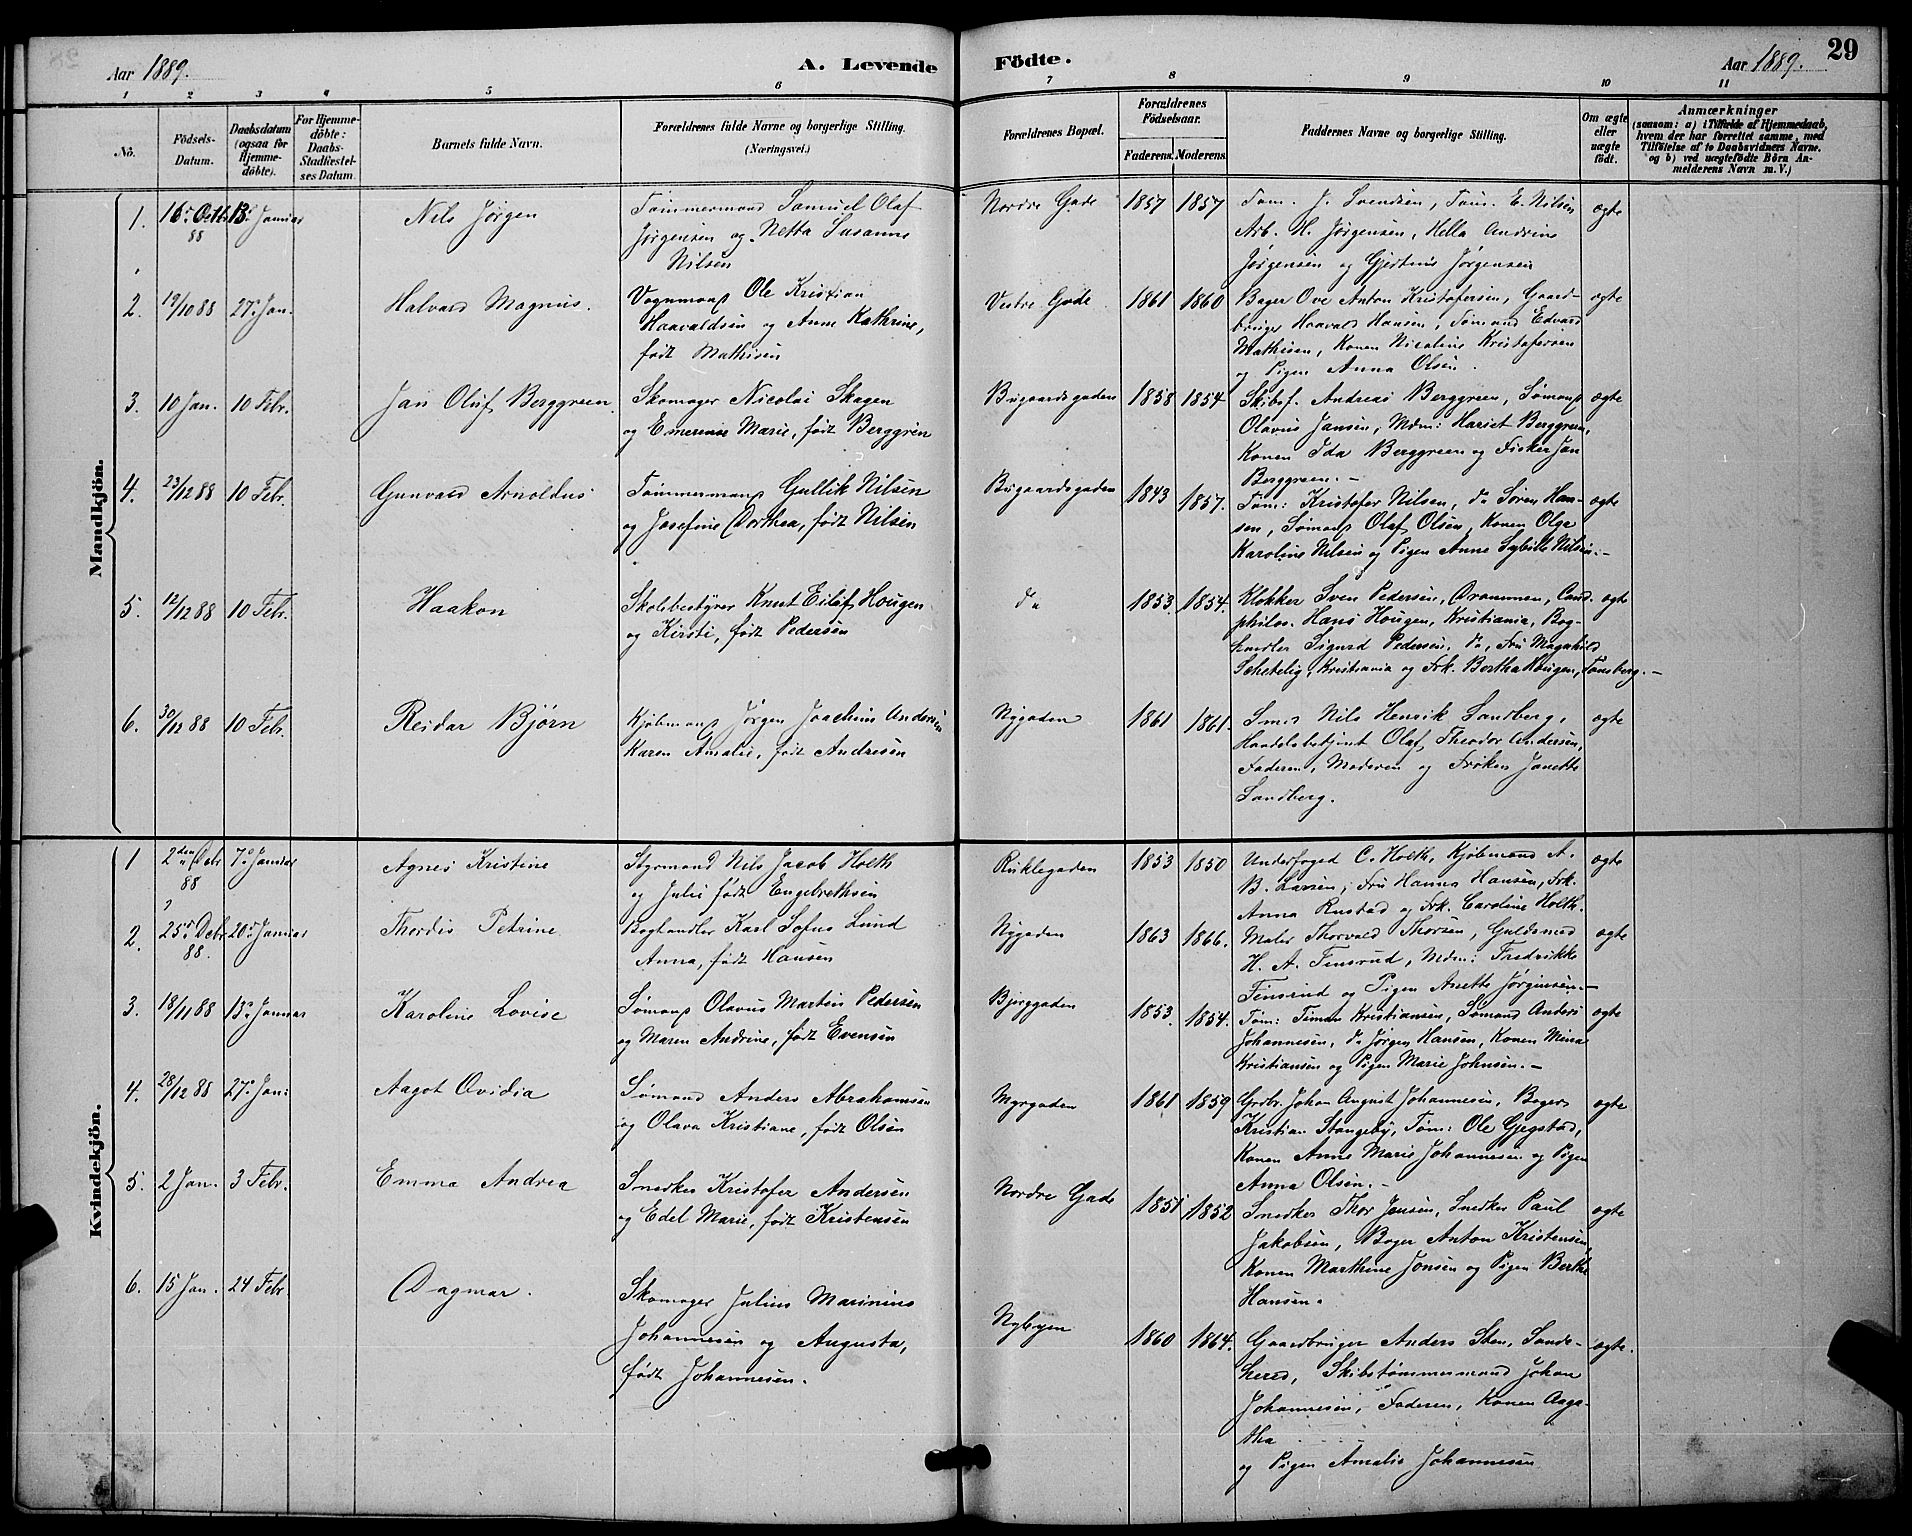 Aar 1889.
A. Levende
Födte.
Aar 1889.
29
1 2 3 4 5 6 7 8 9 10 11
No.
Födsels-
Datum.
Daabsdatum
(ogsaa for
Hjemme-
döbte).
For Hjemme-
döbte:
Daabs-
Stadfæstel-
ses Datum.
Barnets fulde Navn.
Forældrenes fulde Navne og borgerlige Stilling.
(Næringsvei.)
Forældrenes Bopæl.
Forældrenes
Födselsaar.
Faderens. Moderens.
Faddernes Navne og borgerlige Stilling.
Om ægte
eller
uægte
födt.
Anmærkninger
(saasom: a) i Tilfælde af Hjemmedaab,
hvem der har forrettet samme, med
Tilföielse af to Daabsvidners Navne.
og b) ved uægtefödte Börn An-
melderens Navn m. V.)
Mandkjön.
1. 16 Octb 88 13 Januar
Nils Jørgen
Tømmermand Samuel Olaf
Jørgensen og Netta Susanne
Nilsen
Nordre Gade 1857 1857
Tøm. J. Svendsen, Tøm. E. Nilsen
Arb. H. Jørgensen, Hella Andrine
Jørgensen og Gjertine Jørgensen
ægte
2. 19/10 88 27 Jan.
Halvard Magnus.
Vognmand Ole Kristian
Haavaldsen og Anne Kathrine,
født Mathisen
Vestre Gade 1861 1860
Bager Ove Anton Kristofersen, Gaard-
bruger Haavald Hansen, Sømand Edvard
Mathisen, Konen Nicoline Kristofersen
og Pigen Anna Olsen.
ægte
3. 10 Jan. 10 Febr.
Jan Oluf Berggreen
Skomager Nicolai Skagen
og Emerense Marie, født Berggrén
Bugaardsgaden 1858 1854
Skibsf. Andreas Berggreen, Sømand
Olavus Jansen, Mdm: Hariet Berggreen,
Konen Ida Berggreen og Fisker Jan
Berggreen.-
ægte
4. 23/12 88 10 Febr.
Gunvard Arnoldus
Tømmermand Gullik Nilsen
og Josefine Dorthea, født Nilsen
Bugaardsgaden 1843 1857.
Tøm: Kristofer Nilsen, do Søren Han-
sen, Sømand Olaf Olsen, Konen Olga
Karoline Nilsen og Pigen Anne Sybille Nilsen.-
ægte
5. 12/12 88 10 Febr.
Haakon
Skolebestyrer Knut Eilef Hougen
og Kirsti, født Pedersen
do 1853. 1854.
Klokker Sven Pedersen, Drammen, Cand.
philos. Hans Hougen, Kristiania, Bog-
handler Sigurd Pedersen, do, Fru Magnhild
Schetelig, Kristiania og Frk. Bertha Hougen, Tønsberg.-
ægte
6. 30/12 88 10 Febr.
Reidar Bjørn
Kjøbmand Jørgen Joachim Andersen
Karen Amalie, født Andresen
Nygaden 1861 1861.
Smed Nils Henrik Sandberg,
Handelsbetjent Olaf Theodor Andersen,
Faderen, Moderen og Frøken Janette
Sandberg.
ægte
Kvindekjön.
1 2den Debr 88 7de Januar
Agnes Kristine
Styrmand Nils Jacob Holth
og Julie født Engebrethsen
Ruklegaden 1853 1850
Underfoged C. Holth, Kjøbmand A.
B. Larsen, Fru Hanna Hansen, Frk.
Anna Rustad og Frk. Caroline Holth.
ægte
2. 25 Debr 88. 20 Januar
Thordis Petrine
Boghandler Karl Sofus Lund
Anna, født Hansen
Nygaden 1863 1866.
Maler Thorvald Thorsen, Guldsmed
H. A. Finsrud, Mdm: Fredrikke
Finsrud og Pigen Anette Jørginsen.-
ægte
3. 18/11 88 13 Januar
Karoline Lovise
Sømand Olavus Martin Pedersen
og Maren Andrine, født Evensen
Bjerggaden 1853. 1854.
Tøm: Timan Kristiansen, Sømand Anders
Johannesen, do Jørgen Hansen, Konen Mina
Kristiansen og Pigen Marie Johnsen.-
ægte
4. 28/12 88 27 Jan:
Aagot Ovidia
Sømand Anders Abrahamsen
og Olava Kristiane, født Olsen
Myrgaden 1861 1859
Grdbr. Johan August Johannesen, Bager
Kristian Stangeby, Tøm: Ole Gjegstad,
Konen Anne Marie Johannesen og Pigen
Anna Olsen.-
ægte
5. 2 Jan. 3 Febr.
Emma Andrea
Snedker Kristofer Andersen
og Edel Marie, født Kristensen
Nordre Gade 1851 1852
Snedker Thor Jensen, Snedker Paul
Jakobsen, Bager Anton Kristensen,
Konen Marthine Jensen og Pigen Berthe
Hansen.
ægte
6. 15 Jan. 24 Febr
Dagmar.
Skomager Julius Marinius
Johannesen og Augusta,
født Johannesen.
Nybyen 1860 1864.
Gaardbruger Anders Sten, Sande-
hered, Skibstømmermand Johan
Johannesen, Faderen, Konen Aaga-
tha
og Pigen Amalie Johannesen
ægte.